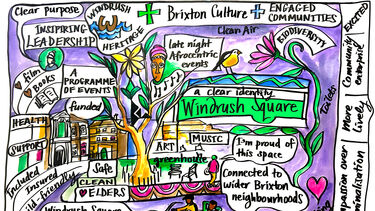 Clear purpose
WINDRUSH
HERITAGE
Brixton Culture
ENGAGED
COMMUNITIES
INSPIRING
LEADERSHIP
late night
Afrocentric
events
Clear Air
BIODIVERSITY
EXCITED
Community
enterprise
film
BOOKS
A
PROGRAMME
OF EVENTS
funded
a clear identity
Windrush Square
toilets
More
Lively
HEALTH
SUPPORT
Included
Insured
child-friendly
Safe
CLEAN
ELDERS
ART
MUSIC
greenhouse
I'm proud of
this space
Connected to
wider Brixton
neighbourhoods
Compassion over
criminalisation
Windrush Square